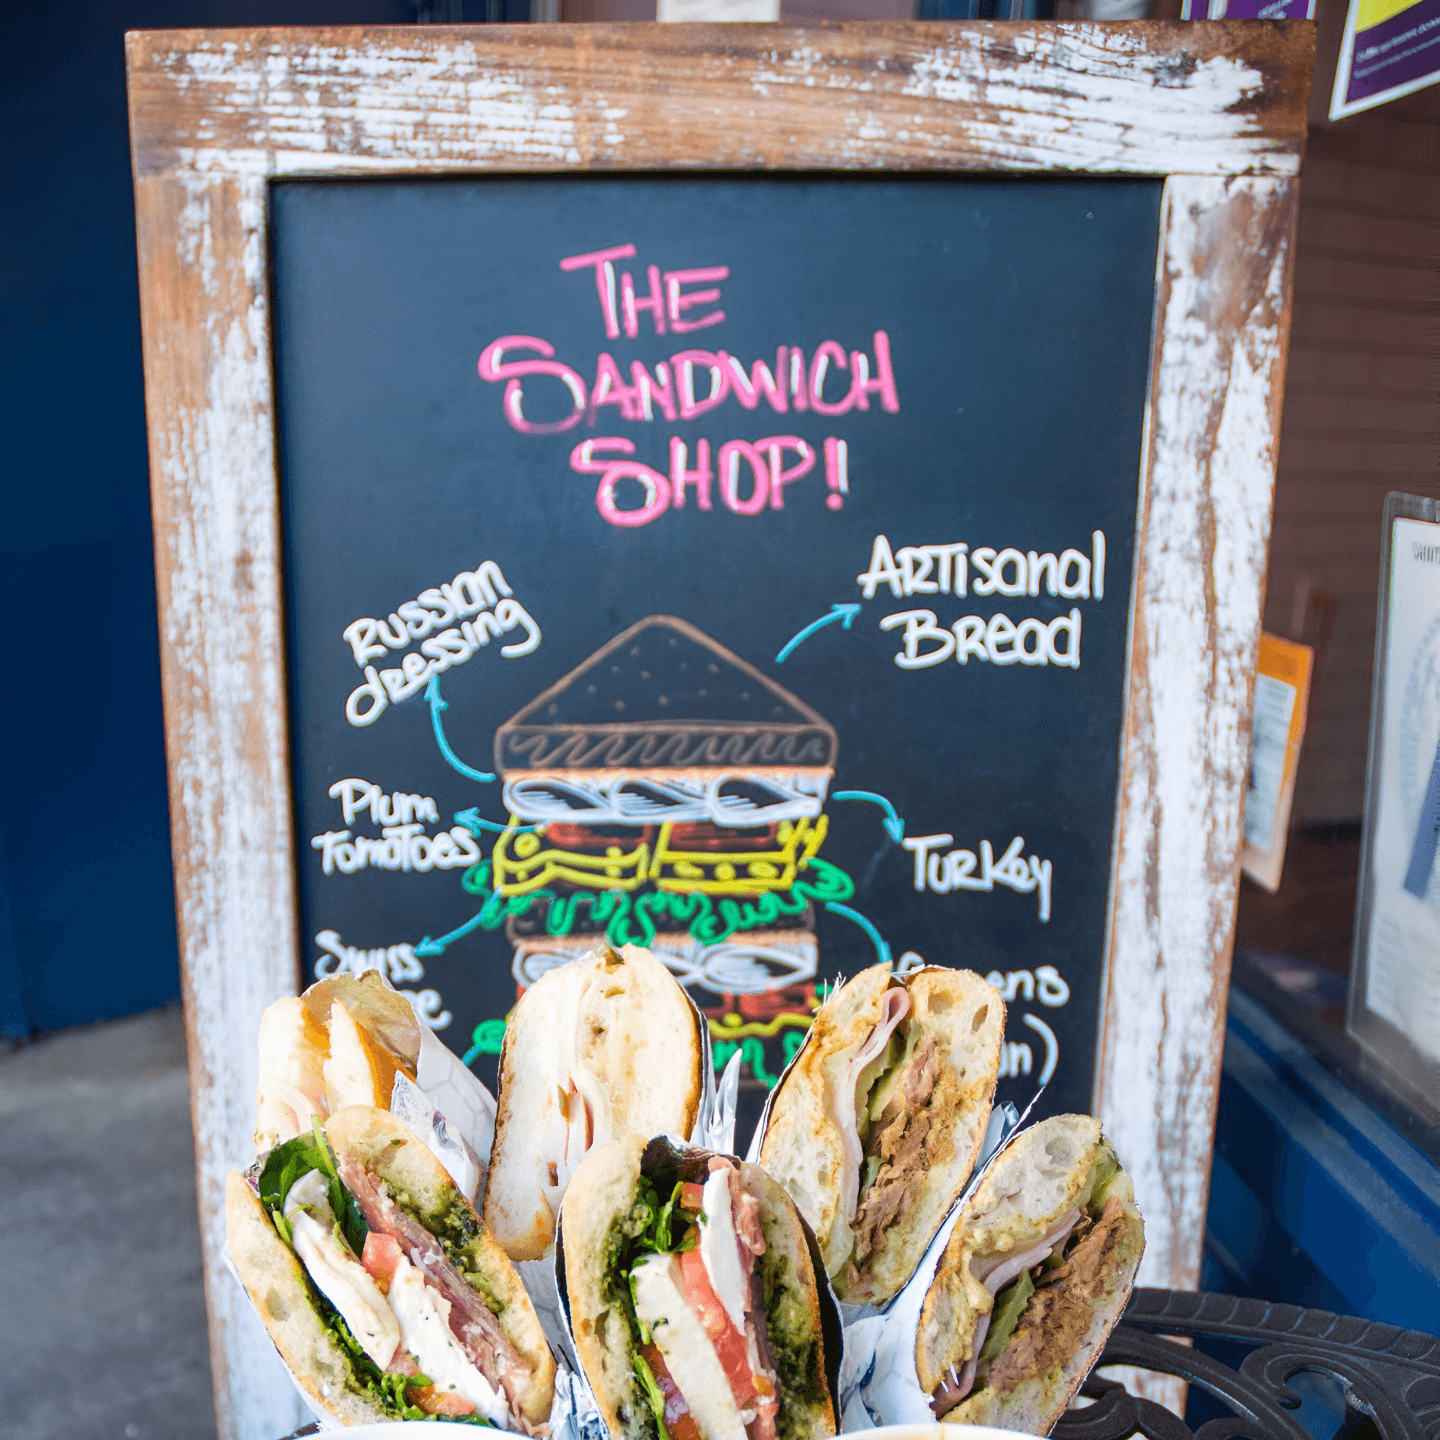 THE
SANDWICH
SHOP!
Russian
dressing
ARTisanal
BRead
Plum
TomaToes
TurKey
Swiss